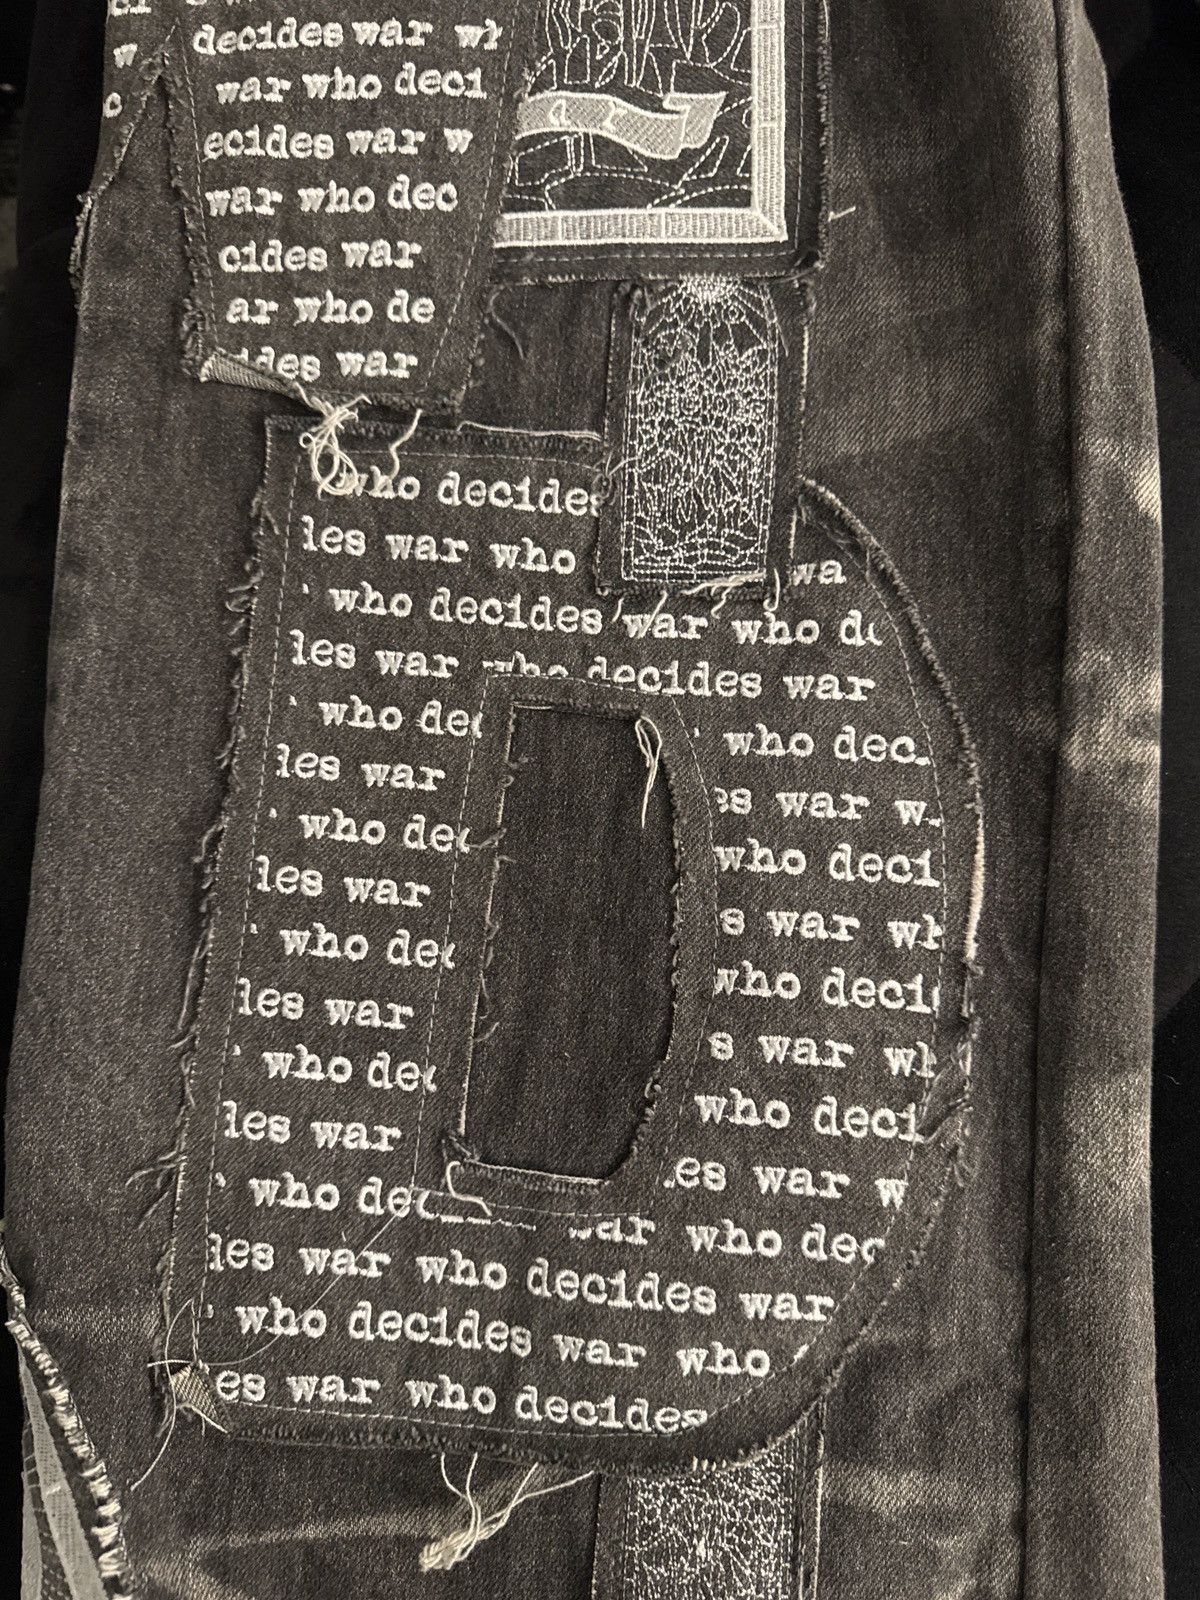 decides war wh
w war who deci
c ecides war w
war who dec
cides war
ar who de
ides war
who decides
les war who wa
who decides war who de
les war who decides war
who dec who dec
les war es war w
who dec who deci
les war s war wh
who dec who deci
les war s war wh
who dec who deci
les war es war w
who dec war who dec
les war who decides war
who decides war who
es war who decides